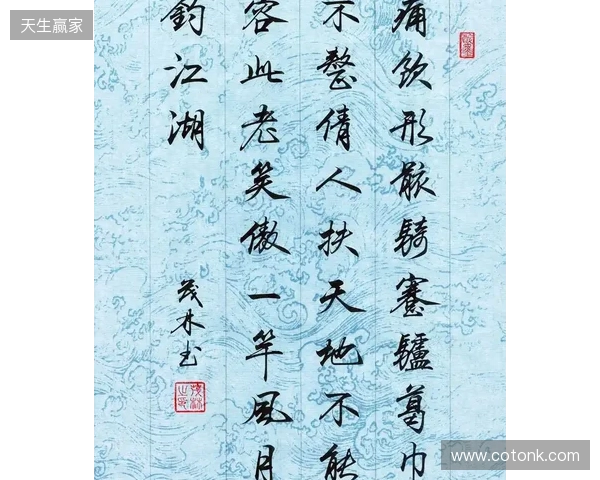 天生赢家
痛饮形骸騎蹇驢葛巾
不整倩人扶天地不能
容此老笑傲一竿風月
釣江湖
茂林书
www.cotonk.com